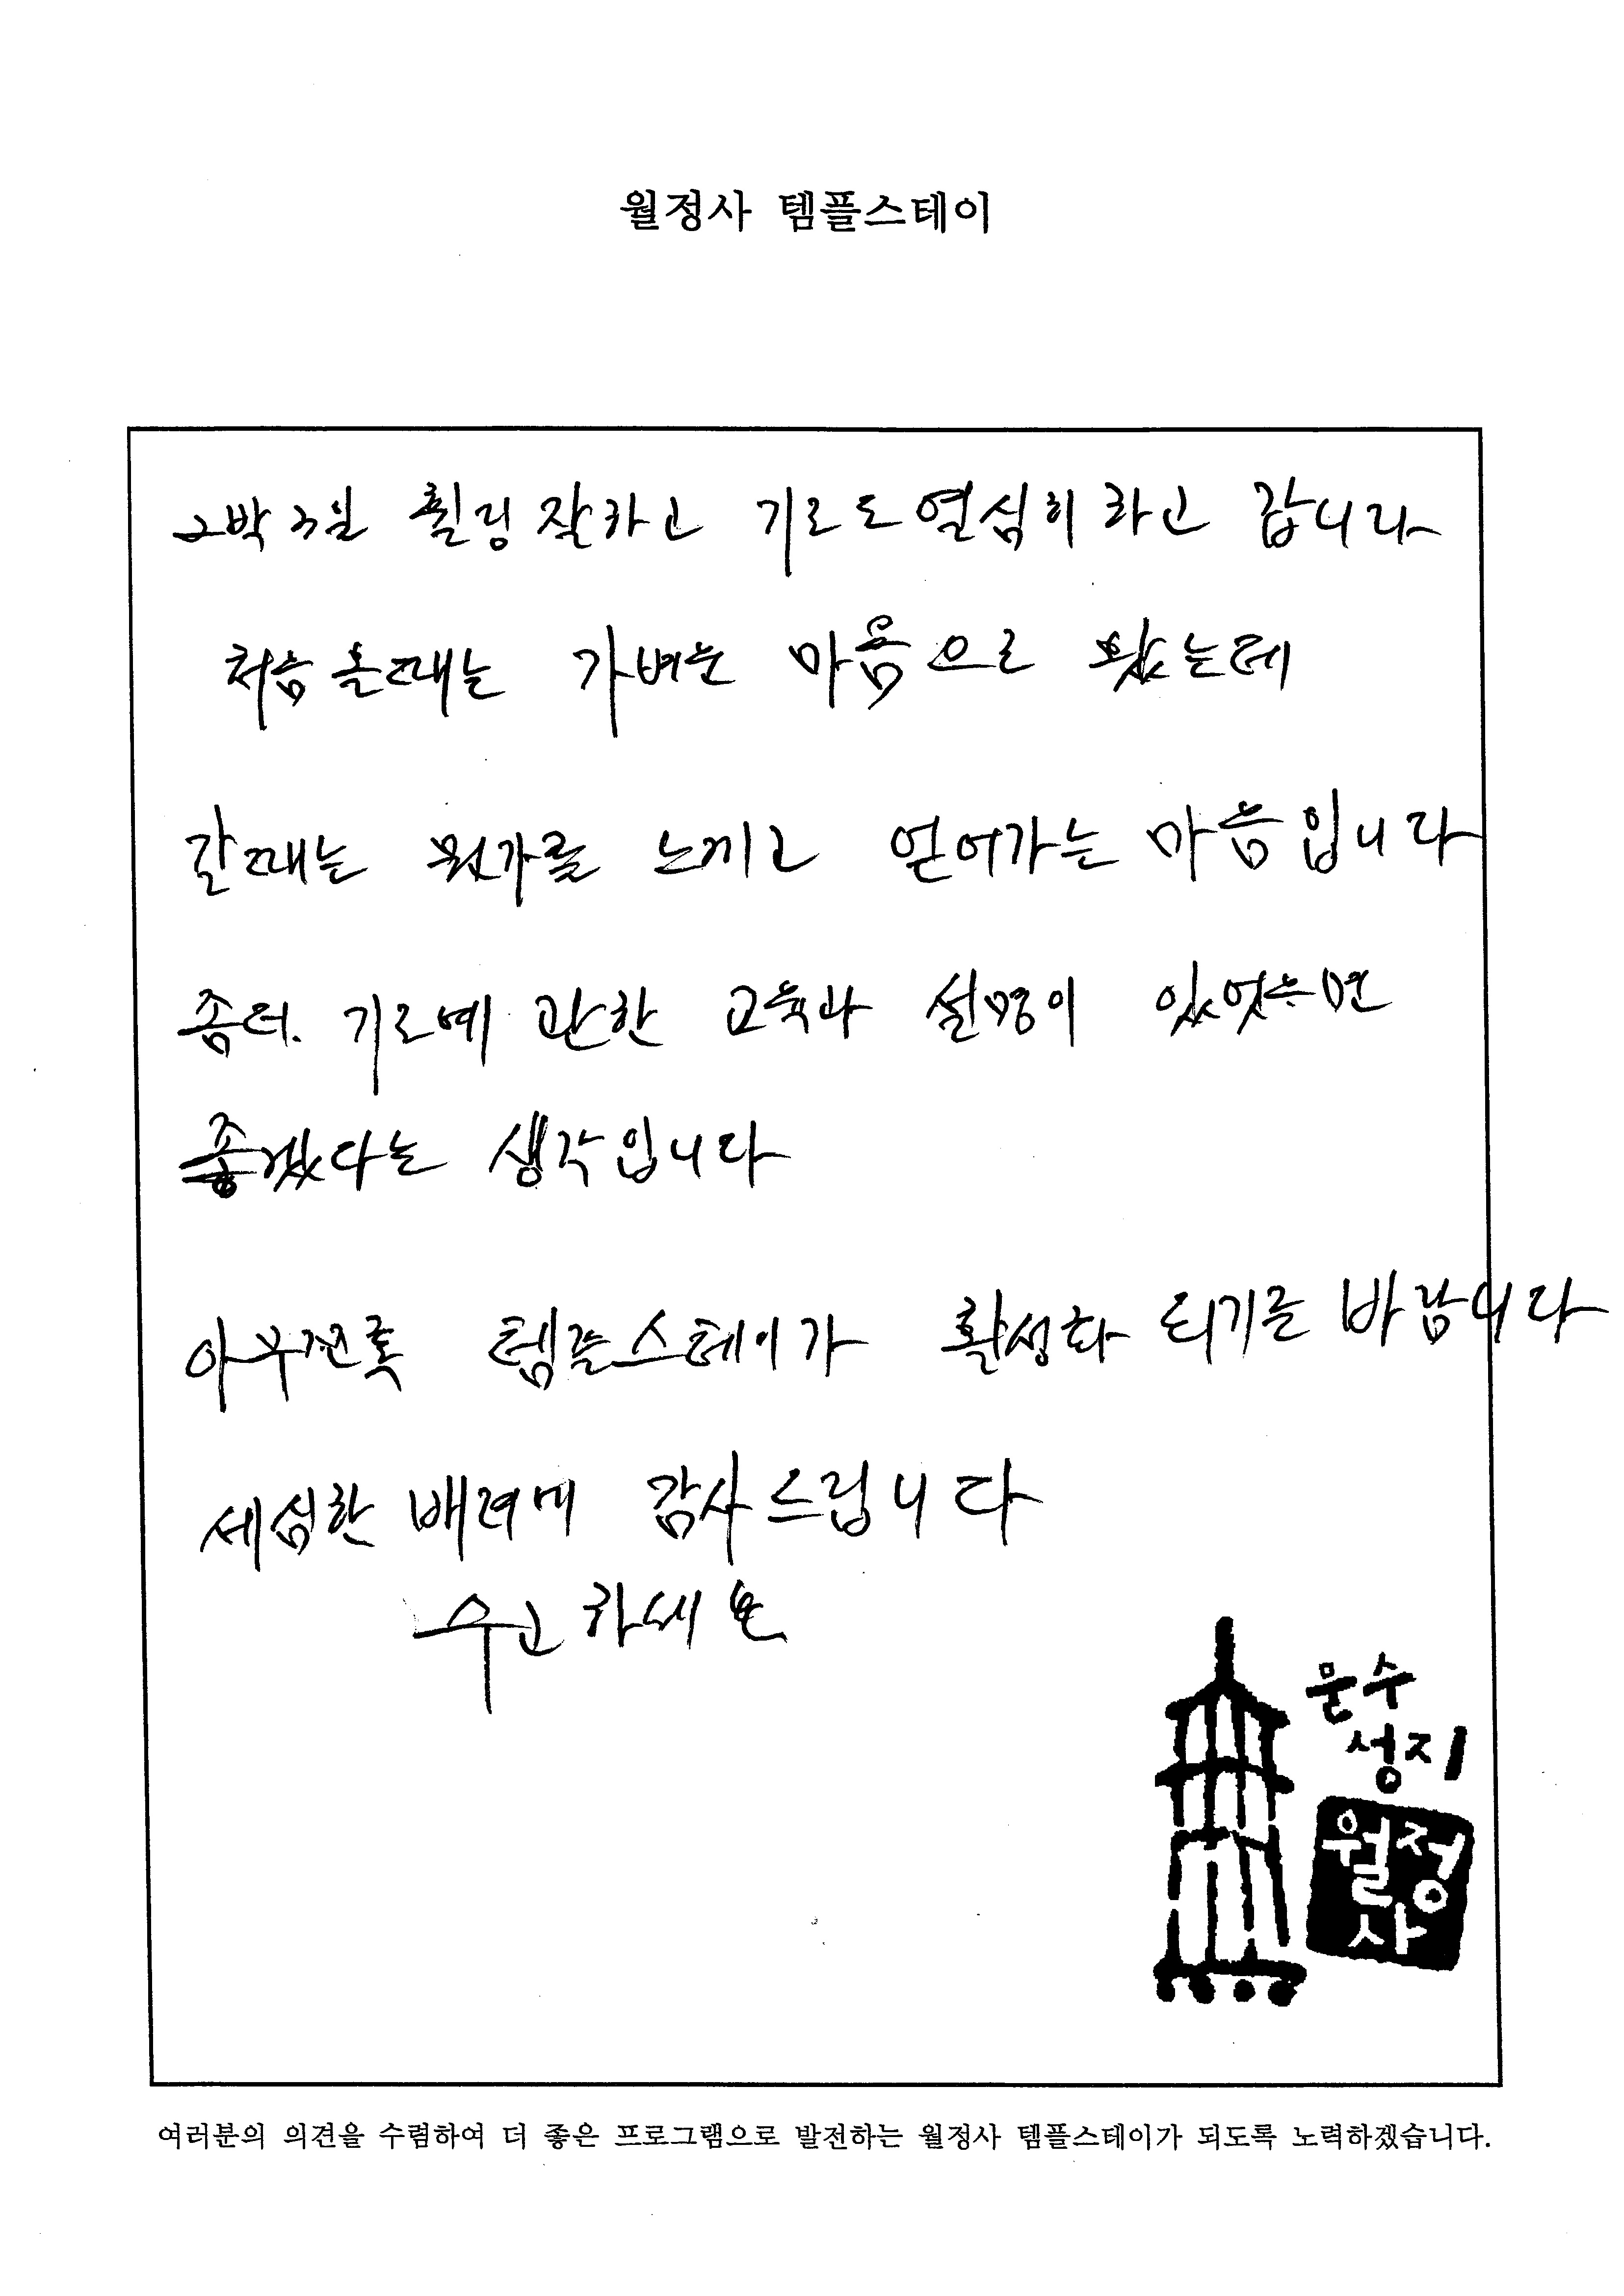 월정사 템플스테이
2박 3일 힐링 잘하고 기도도 열심히 하고 갑니다
처음 올때는 가벼운 마음으로 왔는데
갈때는 뭔가를 느끼고 얻어가는 마음입니다
좀더. 기도에 관한 교육과 설명이 있었으면
좋겠다는 생각입니다
아무쪼록 템플스테이가 활성화 되기를 바랍니다
세심한 배려에 감사드립니다
수고하세요
문수
성지
월정
사
여러분의 의견을 수렴하여 더 좋은 프로그램으로 발전하는 월정사 템플스테이가 되도록 노력하겠습니다.